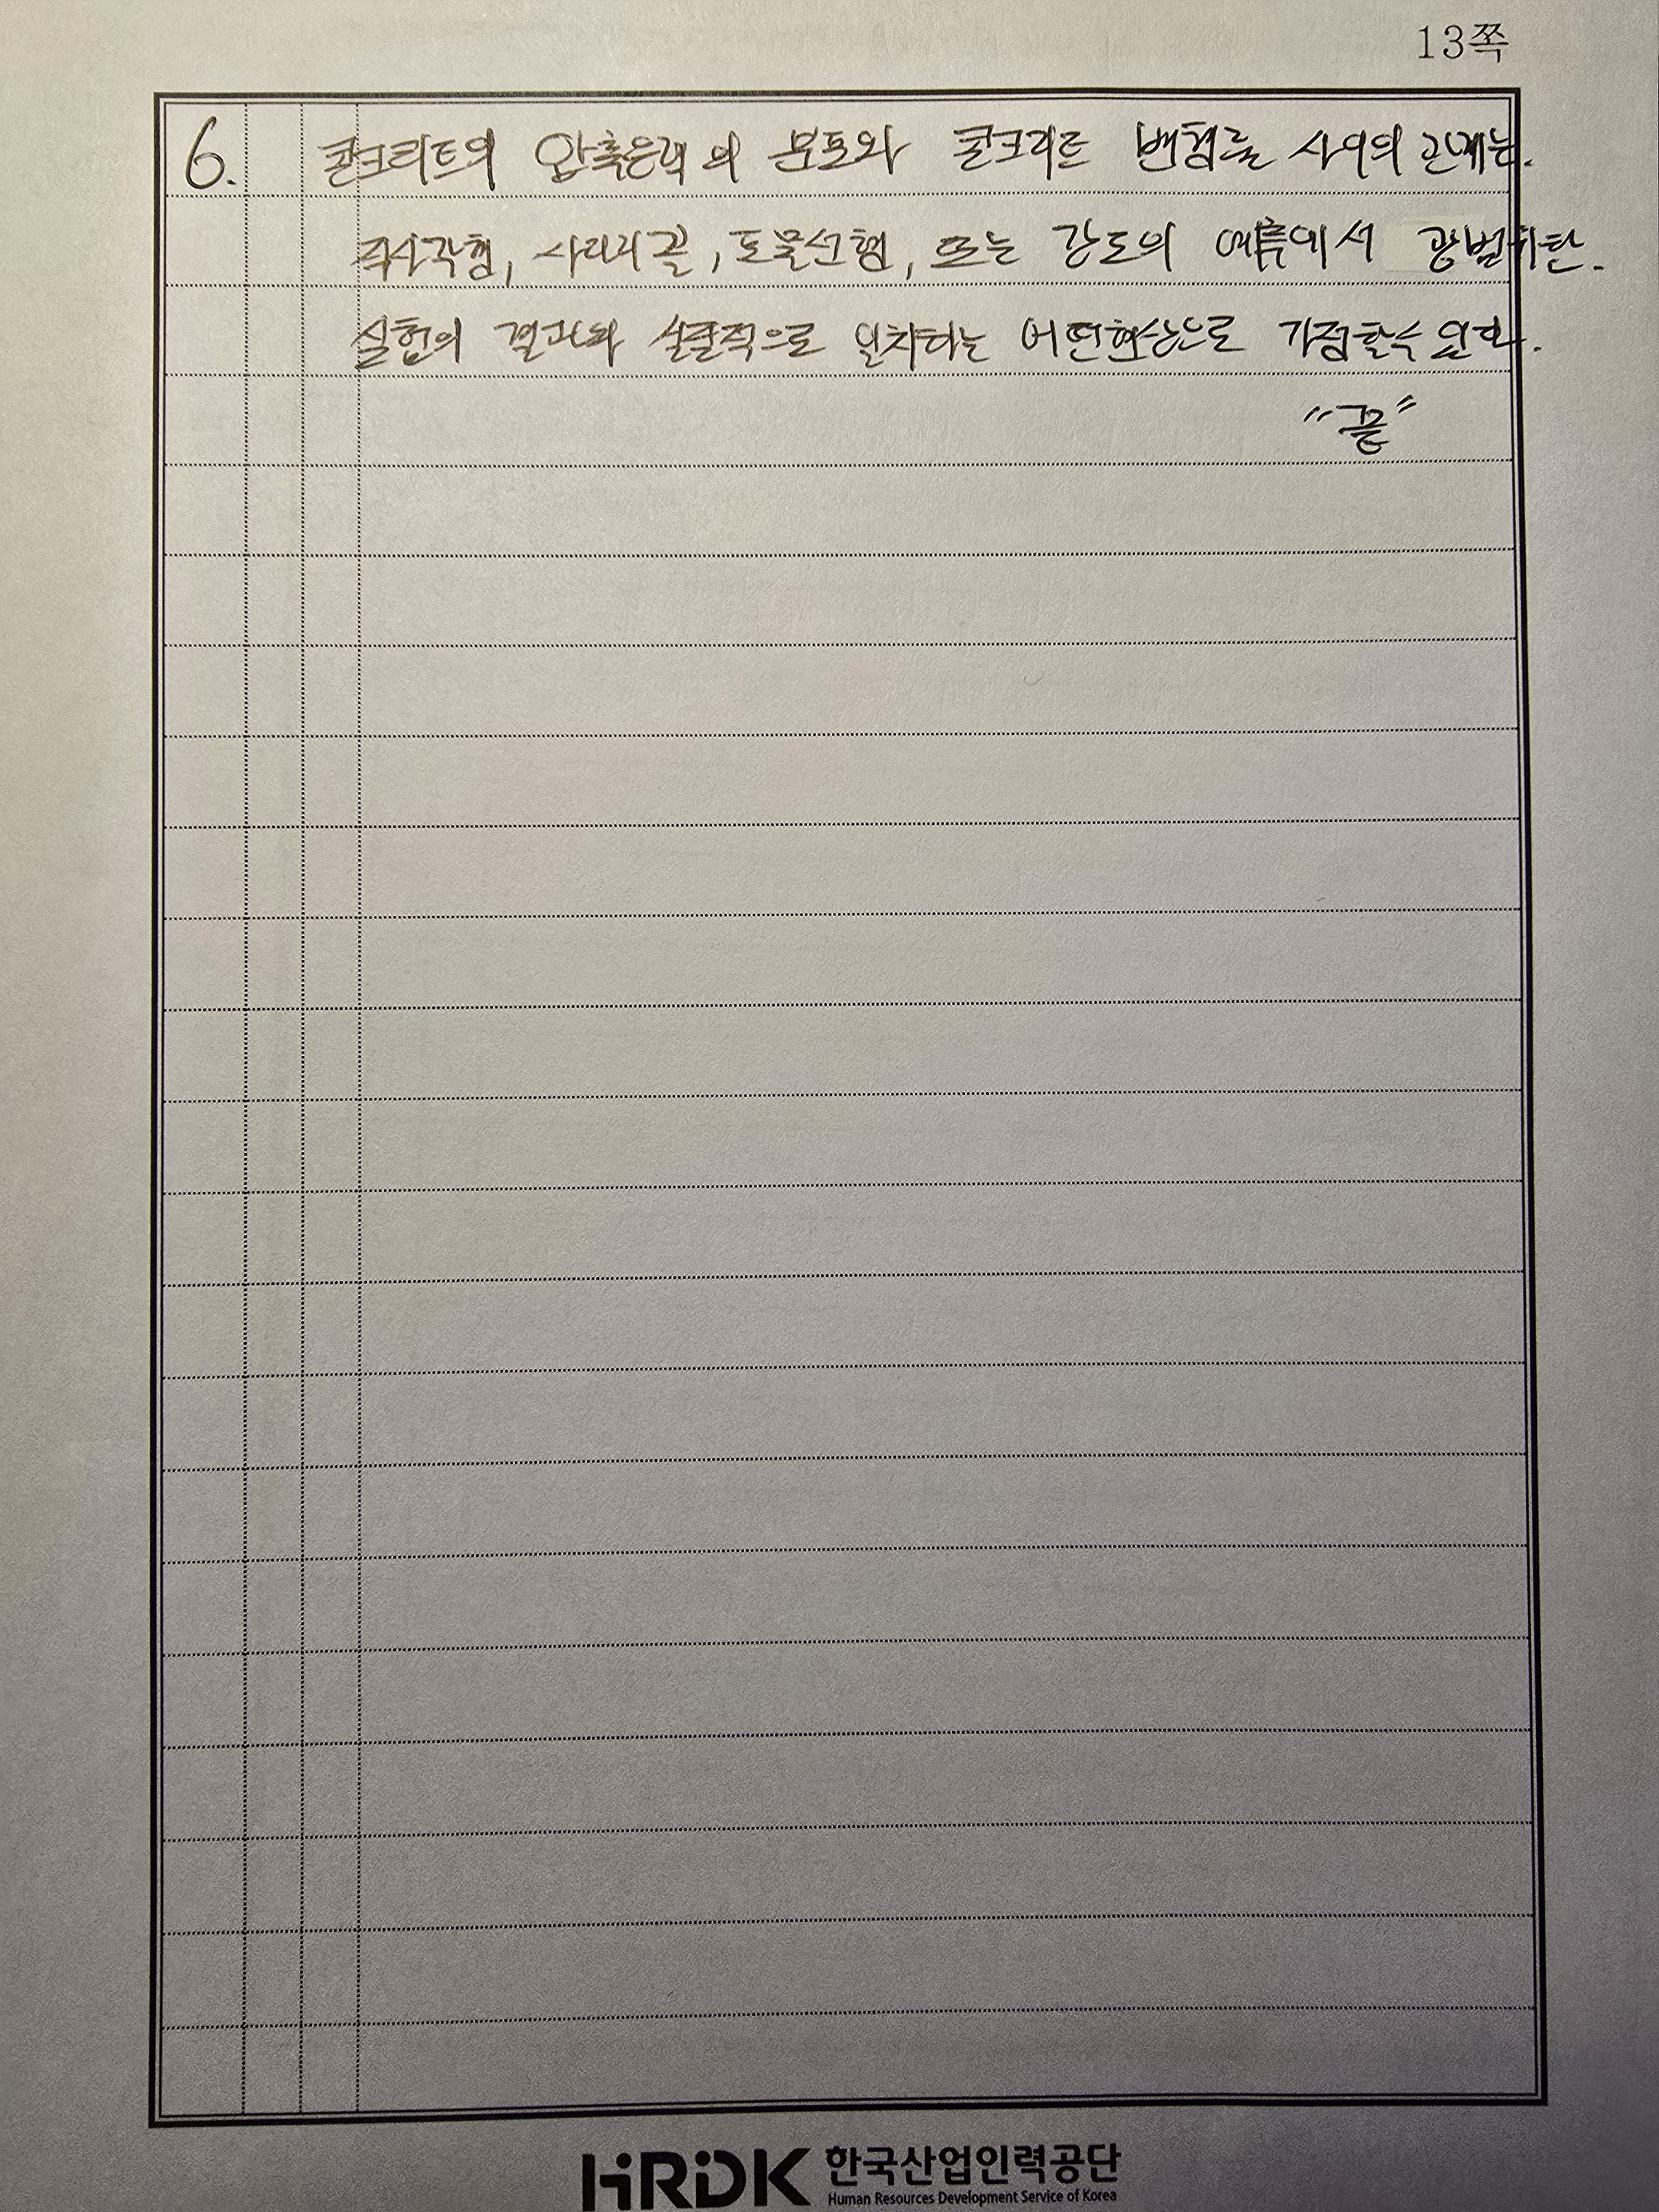 13쪽
6. 콘크리트의 압축응력의 분포와 콘크리트 변형률 사이의 관계는.
직사각형, 사다리꼴, 포물선형, 또는 강도의 예측에서 광범위한.
실험의 결과와 실질적으로 일치하는 어떤형상으로 가정할수 있다.
"끝"
HRDK 한국산업인력공단
Human Resources Development Service of Korea